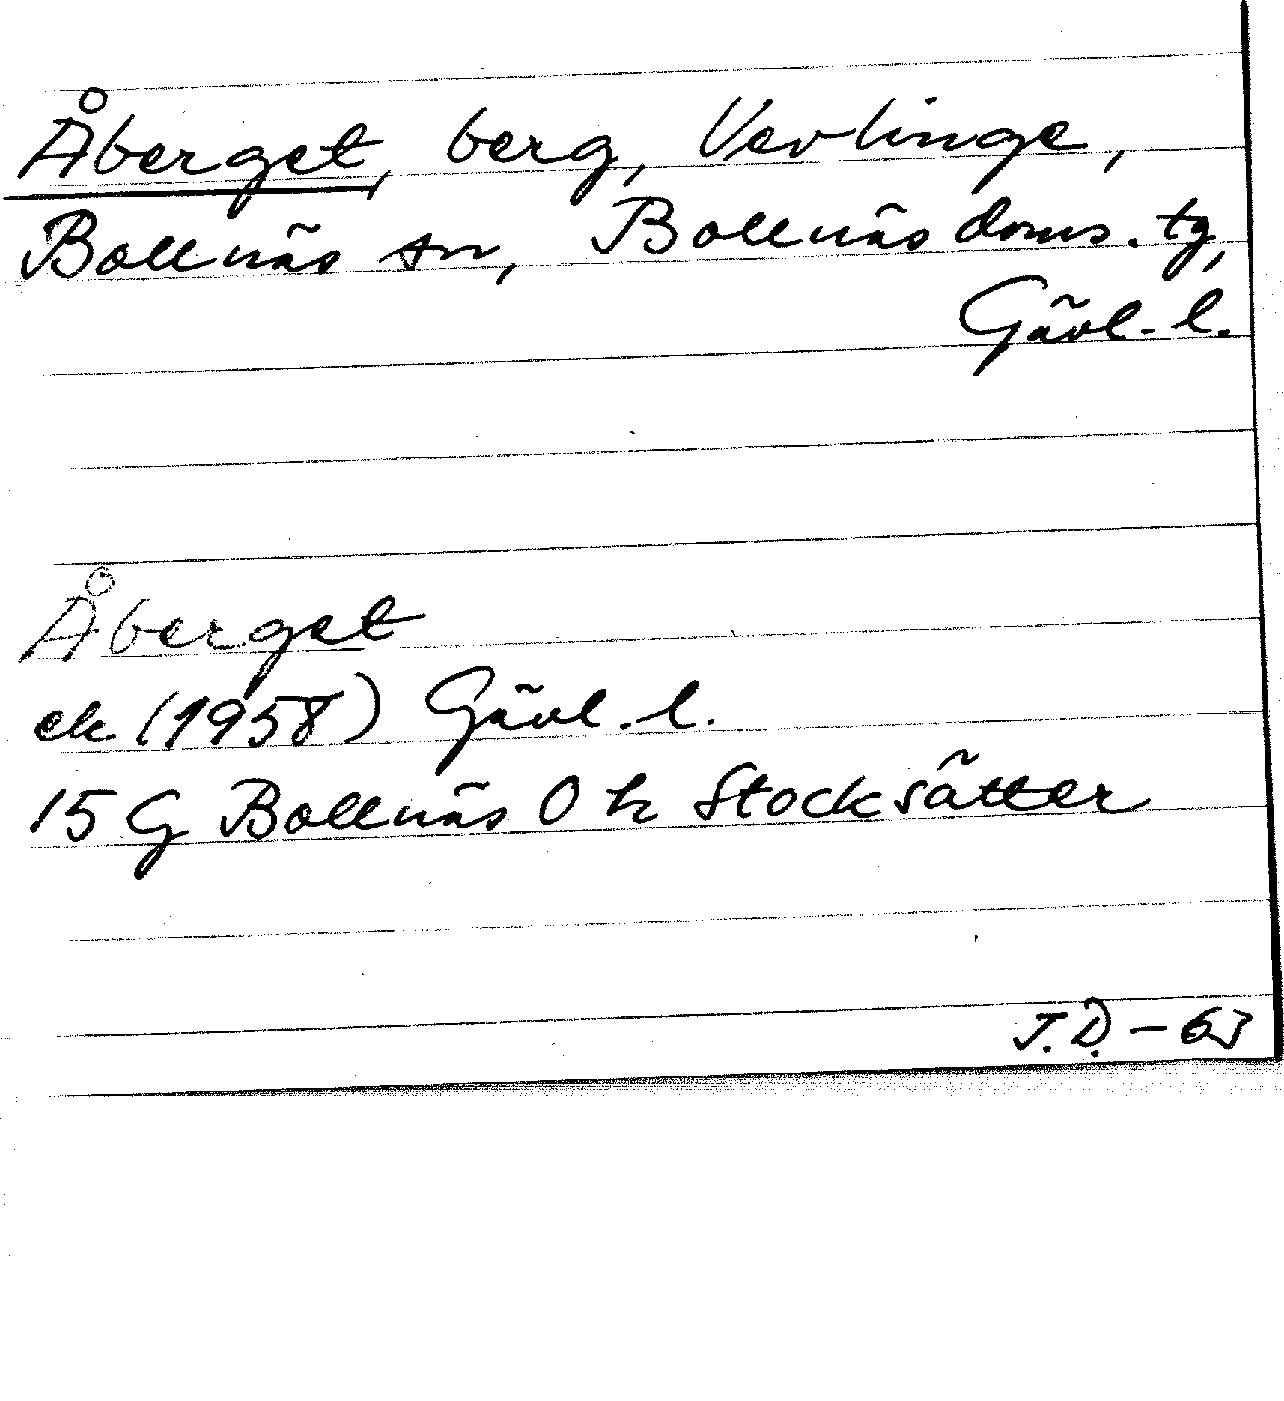 Åberget, berg, Vevlinge,
Bollnäs sn, Bollnäs doms. tg,
Gävl. l.
Åberget
ek (1958) Gävl. l.
15 G Bollnäs O h Stocksätter
J.D. - 63